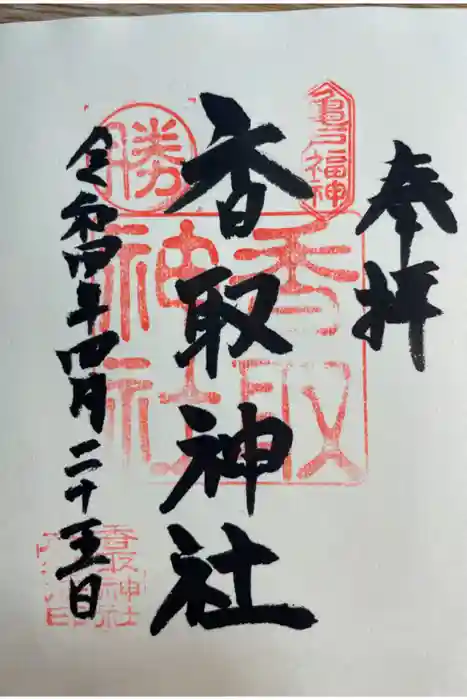 奉拝
亀戸福神
香取神社
香取神社
勝
令和四年四月二十五日
香取神社